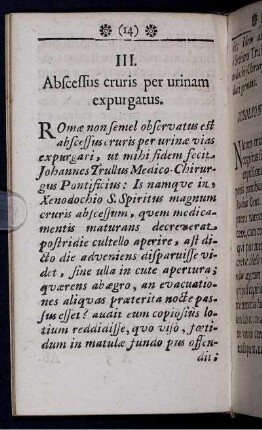 (14)
III.
Abscessus cruris per urinam
expurgatus.
ROmæ non semel observatus est
abscessus cruris per urinæ vias
expurgari, ut mihi fidem fecit
Johannes Trullus Medico-Chirur-
gus Pontificius: Is namque in
Xenodochio S. Spiritus magnum
cruris abscessum, quem medica-
mentis maturans decreverat
postridie cultello aperire, ast di-
cto die adveniens disparuisse vi-
det, sine ulla in cute apertura;
quærens ab ægro, an evacuatio-
nes aliquas præterita nocte pas-
sus esset? audit eum copiosius lo-
tium reddidisse, quo viso, fœti-
dum in matulæ fundo pus offen-
dit: